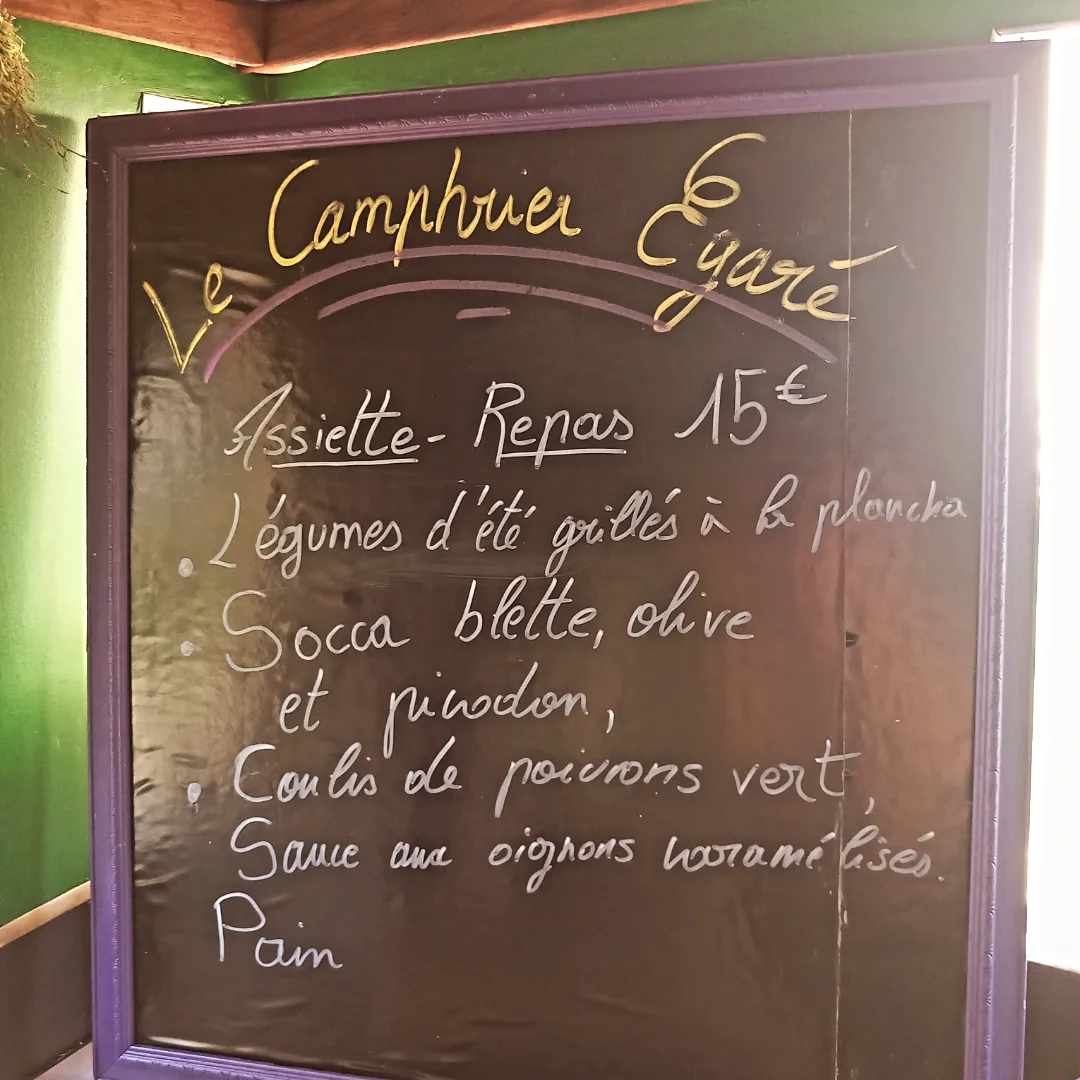 Le Camphrier Egaré
Assiette - Repas 15€
. Légumes d'été grillés à la plancha
. Socca blette, olive
et picodon,
. Coulis de poivrons vert,
Sauce aux oignons caramélisés.
Pain